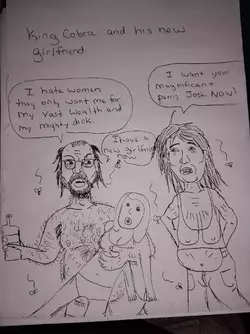 King Cobra and his new
girlfriend.
I hate women
they only want me for
my vast wealth and
my mighty dick.
I have a
new girlfriend
now
I want your
magnificent
penis Josh. NOW!